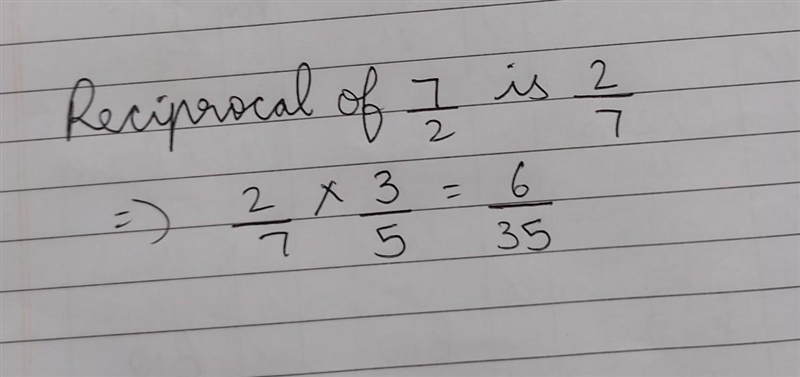 Reciprocal of 7/2 is 2/7
=> 2/7 × 3/5 = 6/35